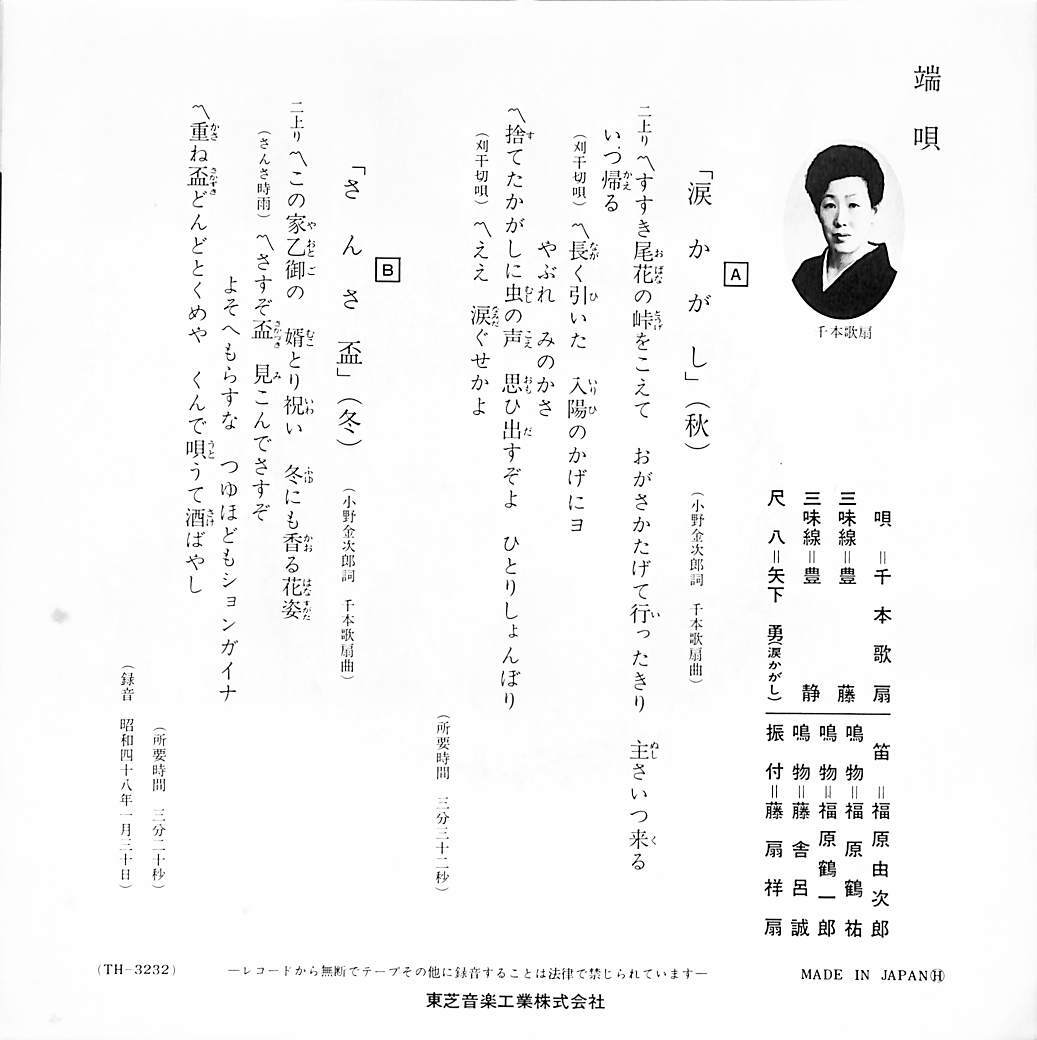 端唄
千本歌扇
唄＝千本歌扇
三味線＝豊藤
三味線＝豊静
尺八＝矢下勇(涙かがし)
笛＝福原由次郎
鳴物＝福原鶴祐
鳴物＝福原鶴一郎
鳴物＝藤舎呂誠
振付＝藤扇祥扇
A
「涙かがし」(秋) (小野金次郎詞 千本歌扇曲)
二上り 〽すすき尾花の峠をこえて おがさかたげて行ったきり 主さいつ来る
いつ帰る
(刈干切唄) 〽長く引いた 入陽のかげにヨ
やぶれ みのかさ
〽捨てたかがしに虫の声 思ひ出すぞよ ひとりしょんぼり
(刈干切唄) 〽ええ 涙ぐせかよ
(所要時間 三分三十二秒)
B
「さんさ盃」(冬) (小野金次郎詞 千本歌扇曲)
二上り 〽この家乙御の 婿とり祝い 冬にも香る花姿
(さんさ時雨) 〽さすぞ盃 見こんでさすぞ
よそへもらすな つゆほどもションガイナ
〽重ね盃どんどとくめや くんで唄うて酒ばやし
(所要時間 三分二十秒)
(録音 昭和四十八年一月三十日)
(TH-3232)
—レコードから無断でテープその他に録音することは法律で禁じられています—
MADE IN JAPANⒽ
東芝音楽工業株式会社